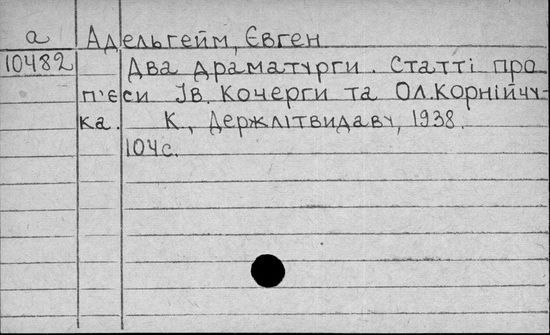 а Адельгейм, Євген
10482 Два драматурги. Статті про
п'єси Ів. Кочерги та Ол. Корнійчу-
ка. К., Держлітвидав, 1938.
104 с.